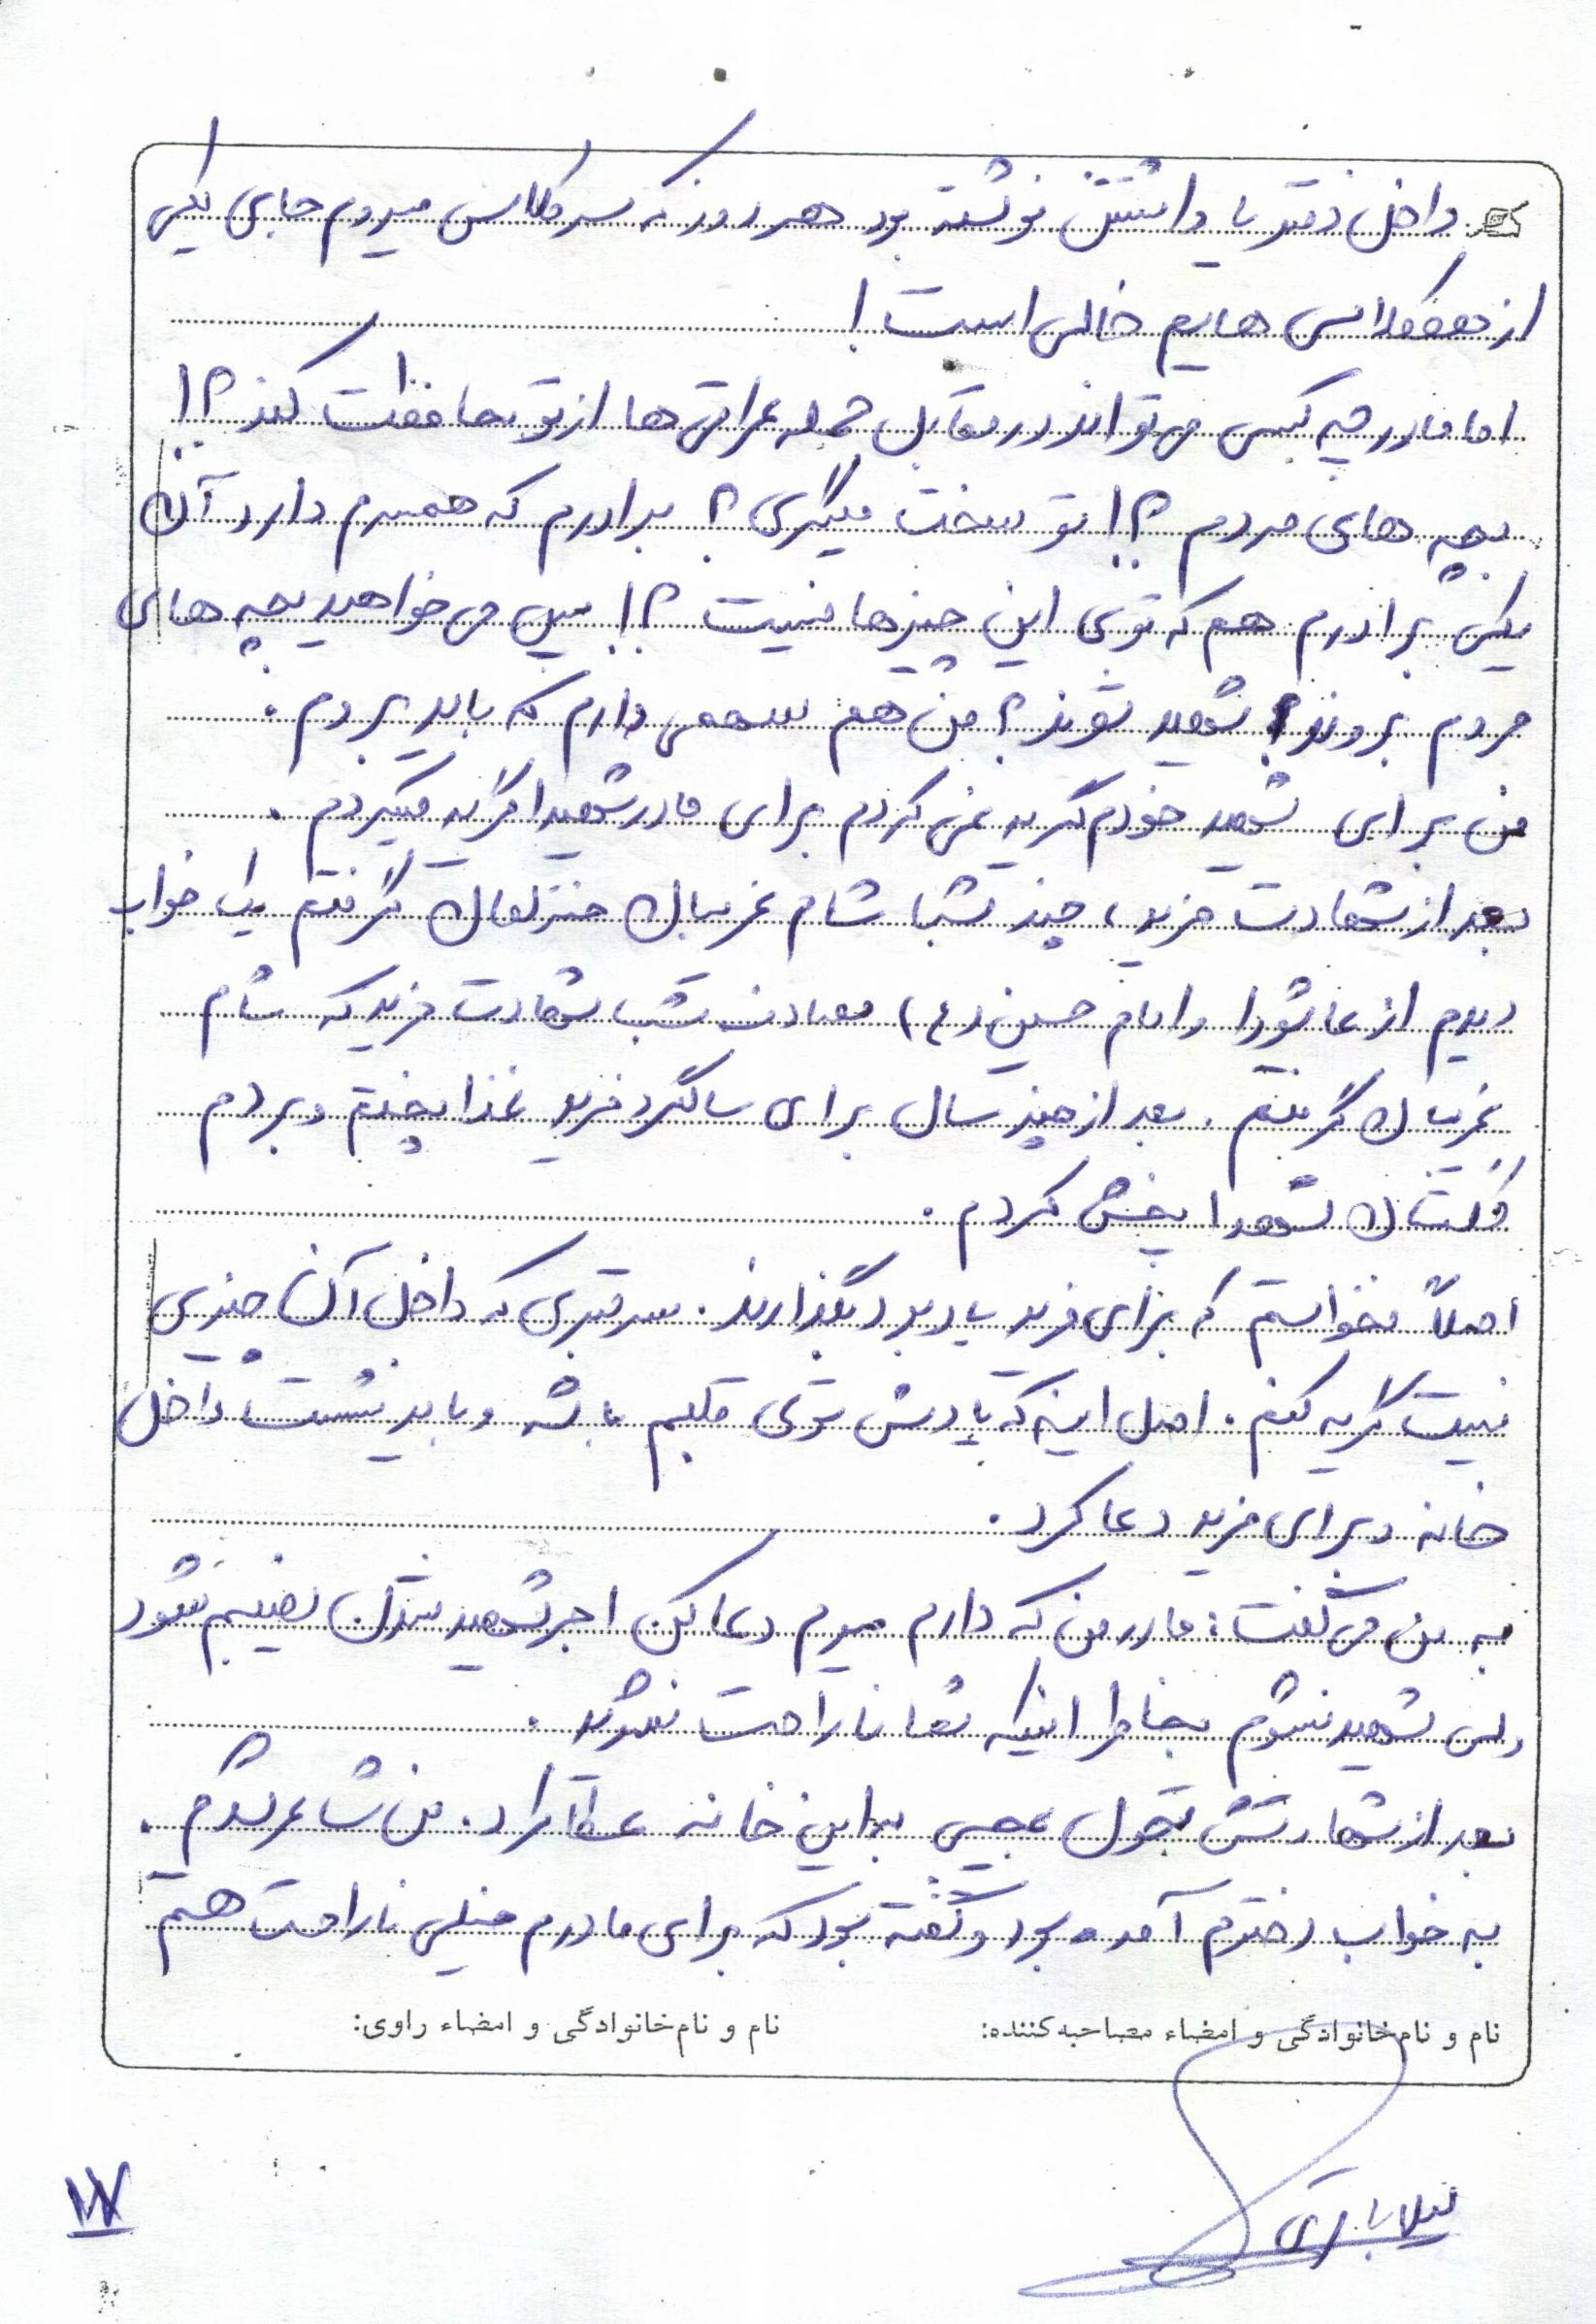 داخل دفتر یادداشتش نوشته بود هر روز که سر کلاس میروم جای یکی
از همکلاسی هایم خالی است!
اما مادر چه کسی می تواند در مقابل حمله عراقی ها از تو محافظت کند؟!
بچه های مردم؟! تو سخت میگیری؟ برادرم که همسرم دارد آن
یکی برادرم هم که توی این چیزها نیست؟! پس می خواهید بچه های
مردم بروند شهید شوند؟ من هم سهمی دارم که باید بروم.
من برای شهید خودم گریه نمی کردم برای مادر شهدا گریه میکردم.
بعد از شهادت فرید، چند شب شام غریبان منزلمان گرفتم یک خواب
دیدم از عاشورا و امام حسین (ع) مصادف شب شهادت فرید که شام
غریبان گرفتم. بعد از چند سال برای سالگرد فرید غذا پختم و بردم
گلستان شهدا پخش کردم.
اصلاً نخواستم که برای فرید یادبود بگذارند. سر قبری که داخل آن چیزی
نیست گریه کنم. اصل اینه که یادش توی قلبم باشه و باید نشست داخل
خانه و برای فرید دعا کرد.
به من می گفت: مادر من که دارم میرم دعا کن اجر شهید شدن نصیبم شود
ولی شهید نشوم بخاطر اینکه شما ناراحت نشوید.
بعد از شهادتش تحول عجیبی به این خانه عطا کرد. من شاعر شدم.
به خواب دخترم آمده بود و گفته بود که برای مادرم خیلی ناراحت هستم
نام و نام خانوادگی و امضاء مصاحبه کننده: نام و نام خانوادگی و امضاء راوی:
۱۷